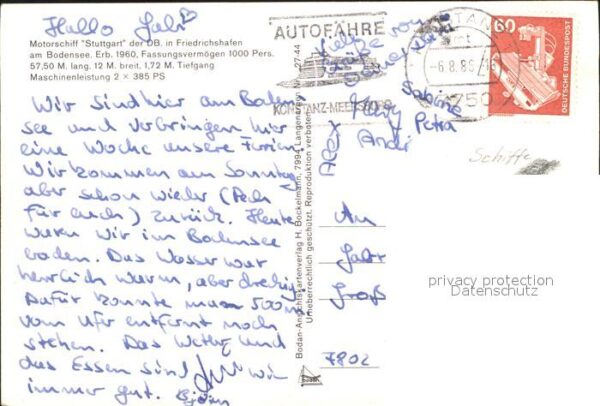 Hallo Gabi
Motorschiff "Stuttgart" der DB. in Friedrichshafen
am Bodensee. Erb. 1960, Fassungsvermögen 1000 Pers.
57,50 M. lang, 12 M. breit, 1,72 M. Tiefgang
Maschinenleistung 2 × 385 PS
Wir sind hier am Boden
see und verbringen hier
eine Woche unsere Ferien.
Wir kommen am Sonntag
aber schon wieder (Pech
für euch) zurück. Heute
waren wir im Bodensee
baden. Das Wasser war
herrlich warm, aber dreckig.
Dafür konnte man 500m
vom Ufer entfernt noch
stehen. Das Wetter und
das Essen sind wie
immer gut. Björn
AUTOFÄHRE
KONSTANZ-MEERSBURG
-6.8.86
7750
60
DEUTSCHE BUNDESPOST
Liebe
von
Sabine
Petra
Andi
Alex
Schiffe
Bodan-Ansichtskartenverlag H. Bockelmann, 7994 Langenargen
Urheberrechtlich geschützt. Reproduktion verboten
An
Gabi
Groß
7802
privacy protection
Datenschutz